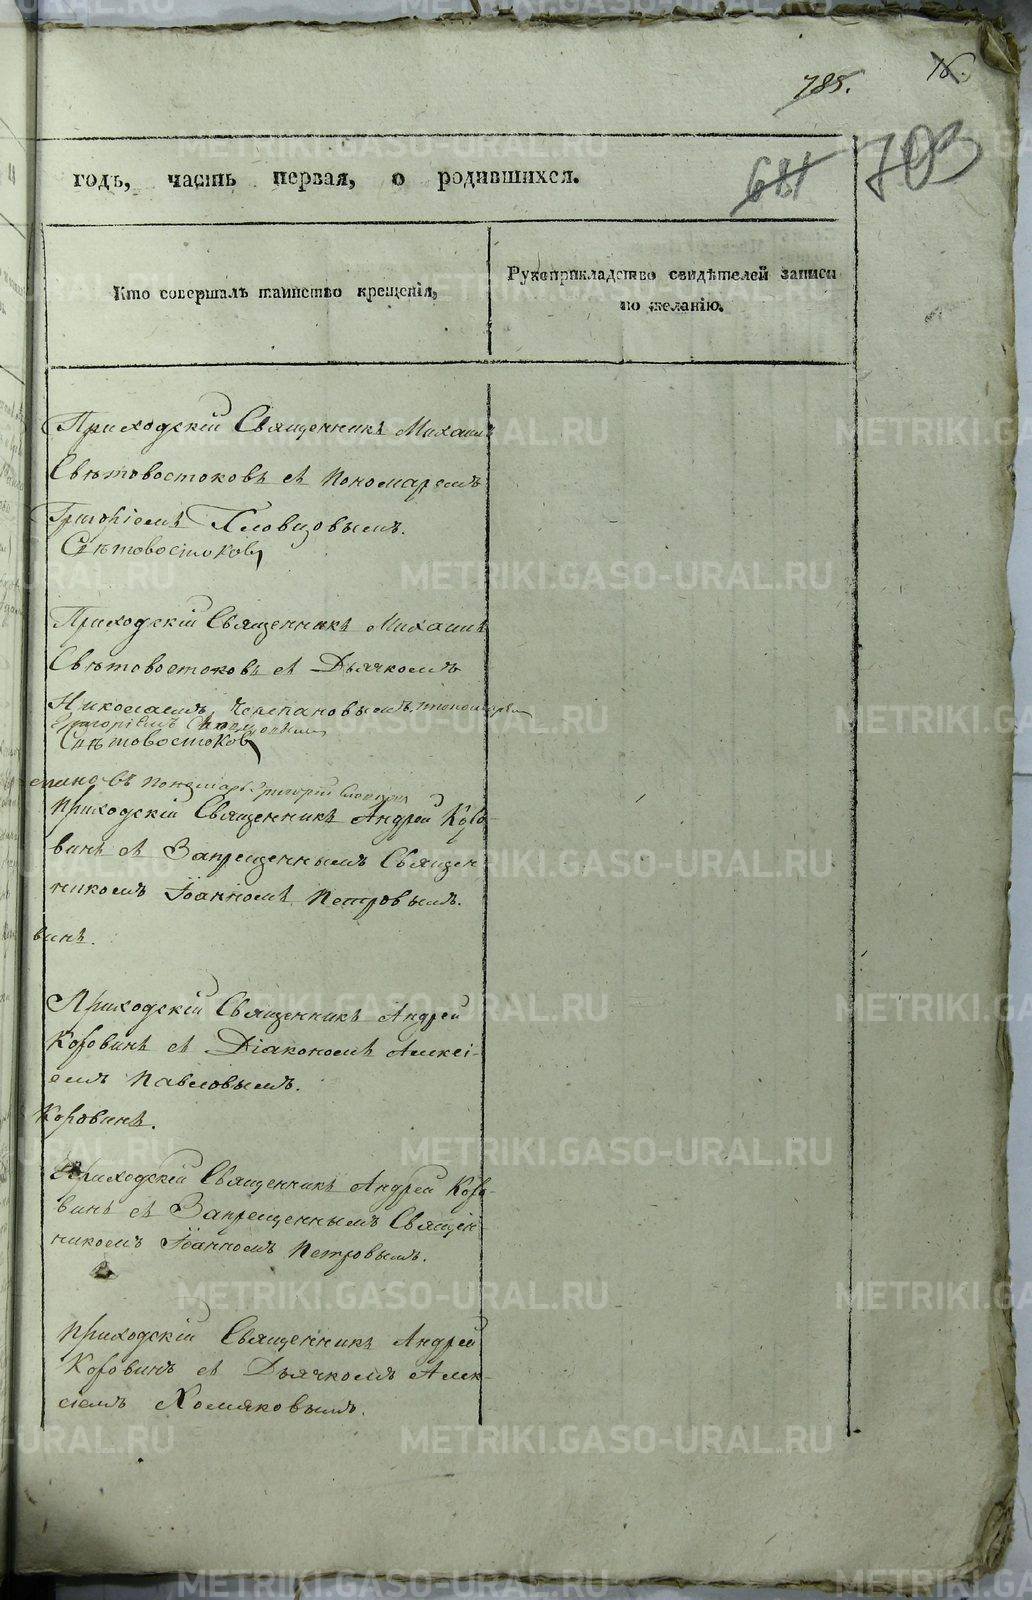 785.
16.
681
703
годъ, часть первая, о родившихся.
Кто совершалъ таинство крещенія,
Рукоприкладство свидѣтелей записи
по желанію.
Приходскій Священникъ Михаилъ
Свѣтовостоковъ съ пономаремъ
Григоріемъ Словцовымъ.
Свѣтовостоковъ
Приходскій Священникъ Михаилъ
Свѣтовостоковъ съ Дьячкомъ
Николаемъ Черепановымъ, пономаремъ
Григоріемъ Словцовымъ
Свѣтовостоковъ
пономарь Григорій Словцовъ
Приходскій Священникъ Андрей Коро-
винъ съ Запрещеннымъ Священ
никомъ Іоанномъ Петровымъ.
винъ.
Приходскій Священникъ Андрей
Коровинъ съ Діакономъ Алексі-
емъ Павловымъ.
Коровинъ.
Приходскій Священникъ Андрей Коро-
винъ съ Запрещеннымъ Священ
никомъ Іоанномъ Петровымъ.
Приходскій Священникъ Андрей
Коровинъ съ Дьячкомъ Алек-
сіемъ Хомяковымъ.
METRIKI.GASO-URAL.RU